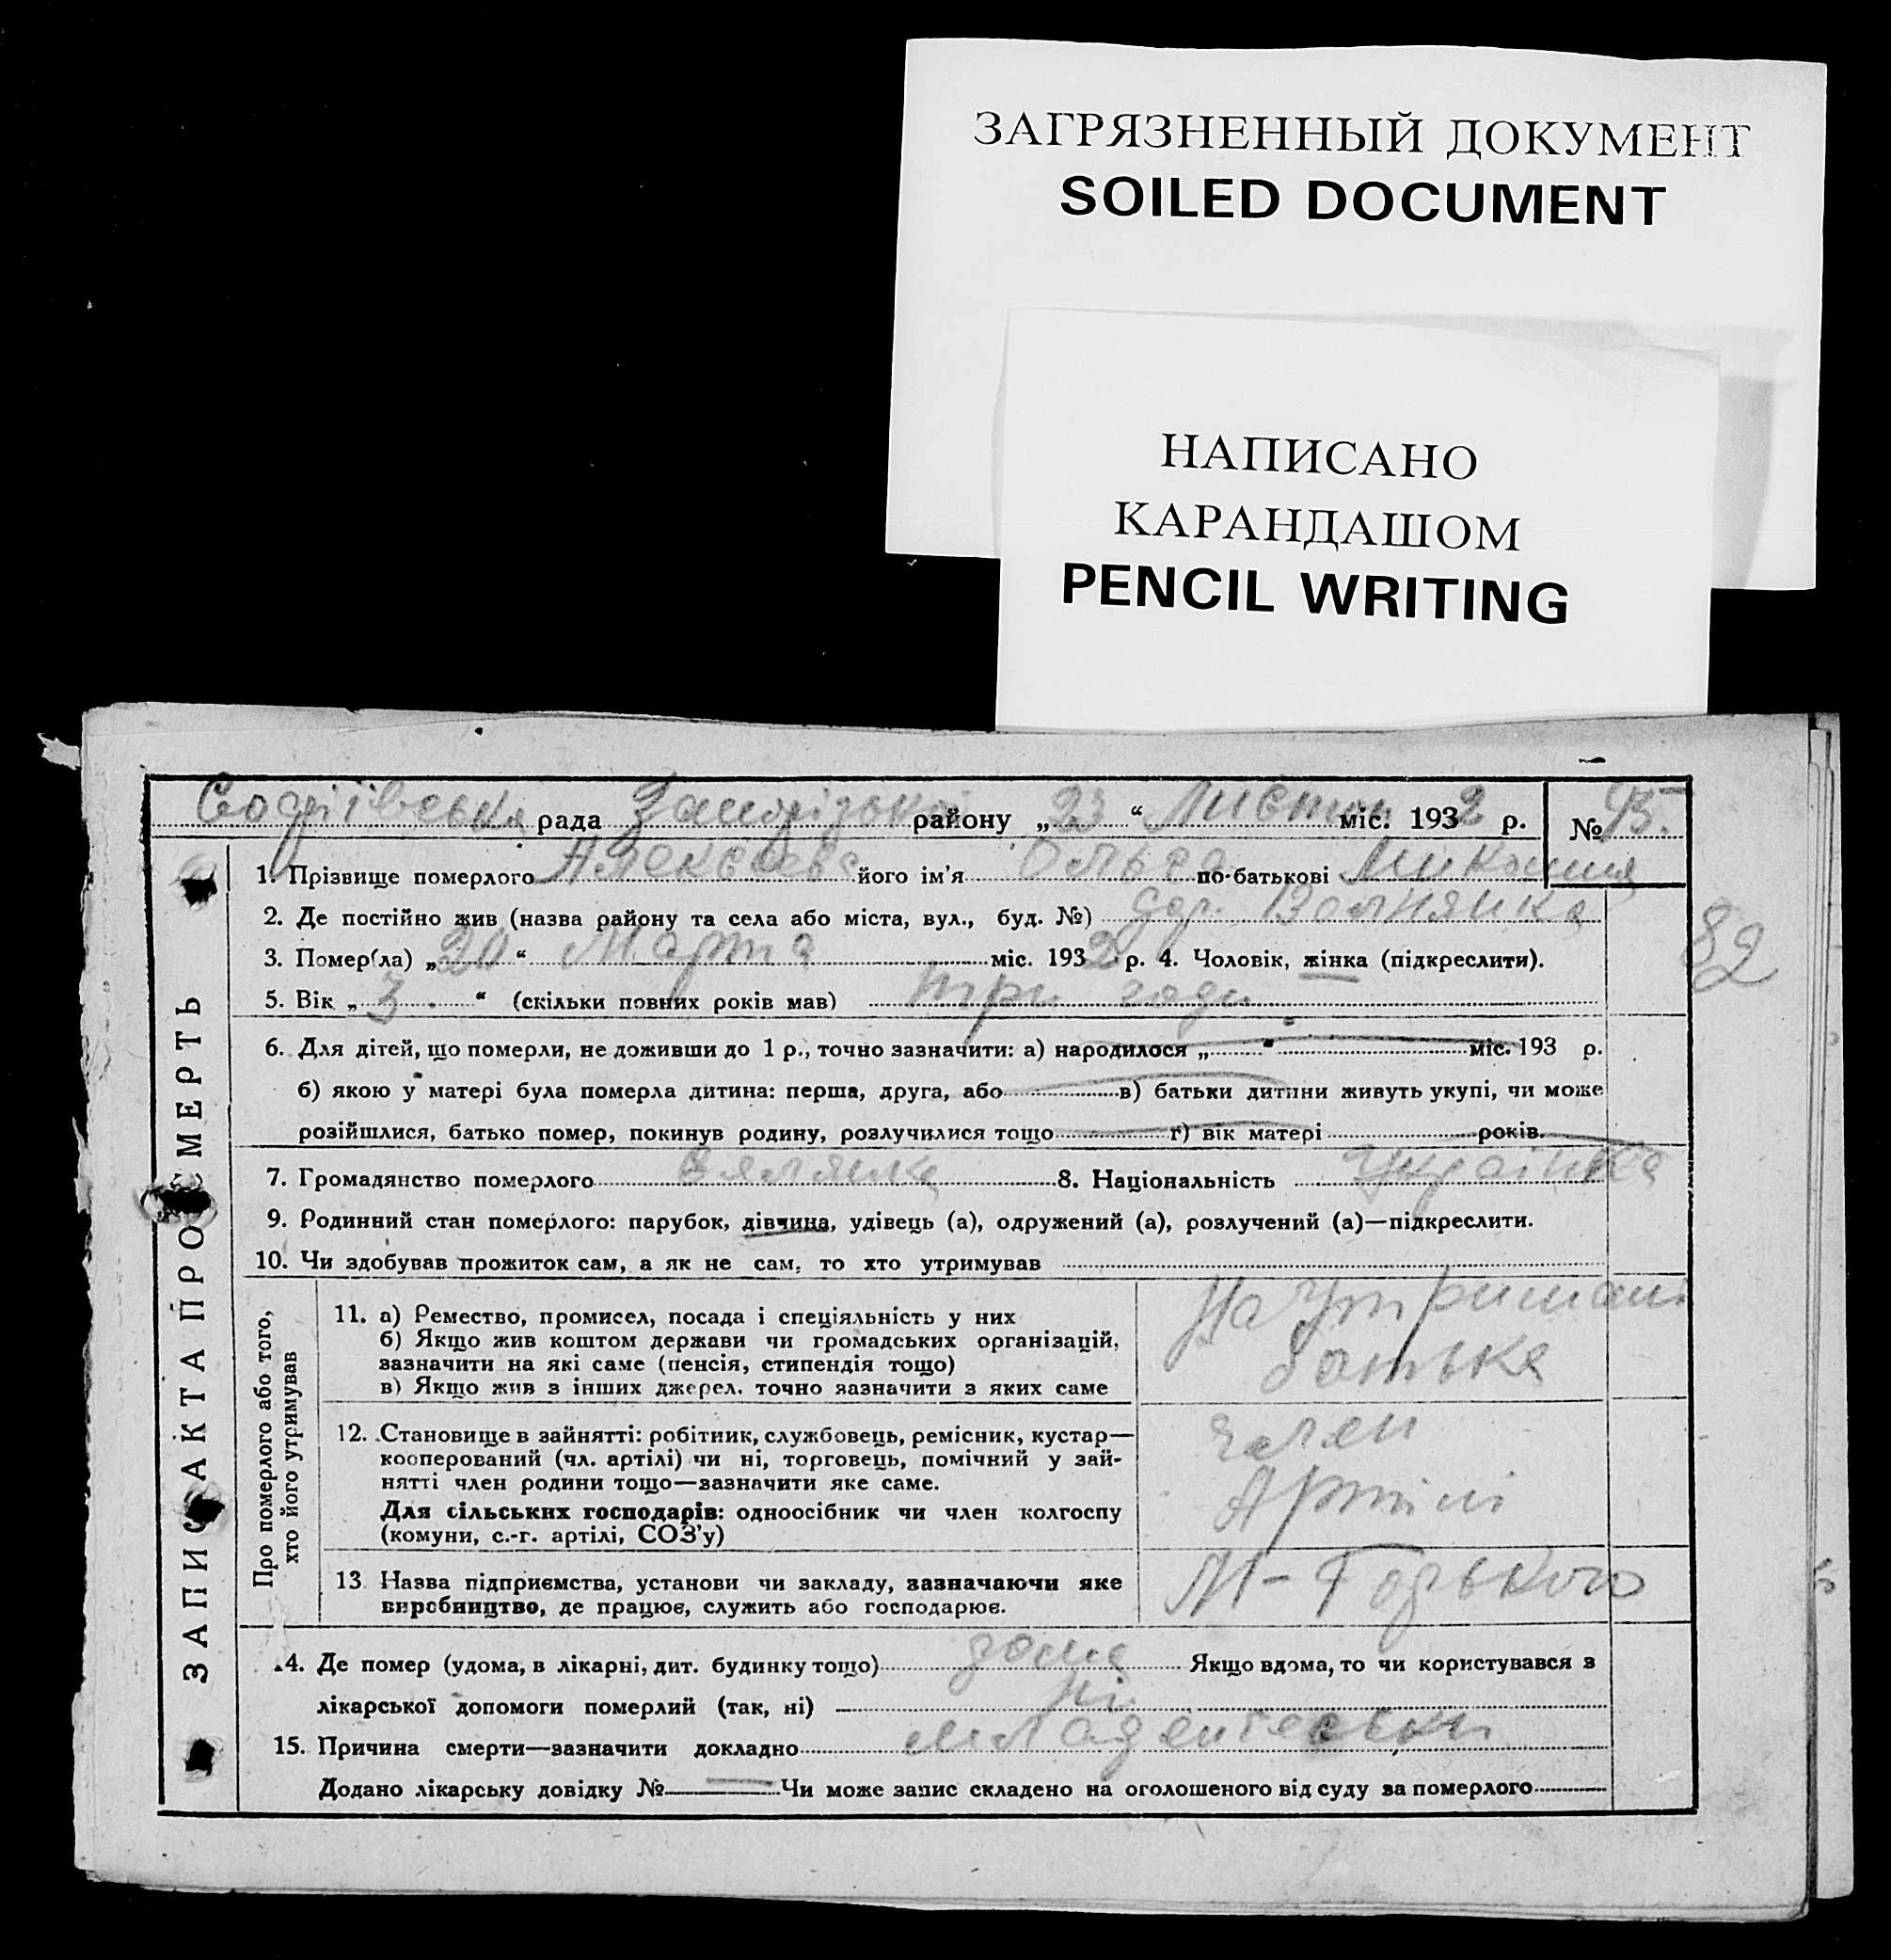 ЗАГРЯЗНЕННЫЙ ДОКУМЕНТ
SOILED DOCUMENT
НАПИСАНО
КАРАНДАШОМ
PENCIL WRITING
Софіївська рада Запорізької району „23“ міс. 1932 р. №
1. Прізвище померлого Алексеева його ім'я Ольга по-батькові
2. Де постійно жив (назва району та села або міста, вул., буд. №) Волнянка
82
3. Помер(ла) „20“ Марта міс. 1932 р. 4. Чоловік, жінка (підкреслити).
5. Вік „3.“ (скільки повних років мав) три годи
6. Для дітей, що померли, не доживши до 1 р., точно зазначити: а) народилося „ “ міс. 193 р.
б) якою у матері була померла дитина: перша, друга, або в) батьки дитини живуть укупі, чи може
розійшлися, батько помер, покинув родину, розлучилися тощо г) вік матері років.
7. Громадянство померлого 8. Національність Українка
9. Родинний стан померлого: парубок, дівчина, удівець (а), одружений (а), розлучений (а)—підкреслити.
10. Чи здобував прожиток сам, а як не сам, то хто утримував
ЗАПИС АКТА ПРО СМЕРТЬ
Про померлого або того,
хто його утримував
11. а) Ремество, промисел, посада і спеціяльність у них
б) Якщо жив коштом держави чи громадських організацій,
зазначити на які саме (пенсія, стипендія тощо)
в) Якщо жив з інших джерел, точно зазначити з яких саме
На Утримані
батька
12. Становище в зайнятті: робітник, службовець, ремісник, кустар—
кооперований (чл. артілі) чи ні, торговець, помічний у зай-
нятті член родини тощо—зазначити яке саме.
Для сільських господарів: одноосібник чи член колгоспу
(комуни, с.-г. артілі, СОЗ'у)
член
Артілі
13. Назва підприємства, установи чи закладу, зазначаючи яке
виробництво, де працює, служить або господарює.
М-Горького
.4. Де помер (удома, в лікарні, дит. будинку тощо) дома Якщо вдома, то чи користувався з
лікарської допомоги померлий (так, ні) ні
15. Причина смерти—зазначити докладно
Додано лікарську довідку № — Чи може запис складено на оголошеного від суду за померлого